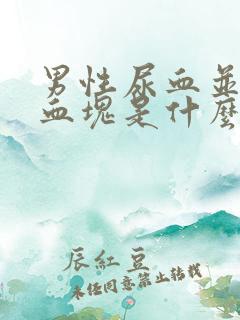 男性尿血並
血塊是什麼
辰紅豆
未经同意禁止转载